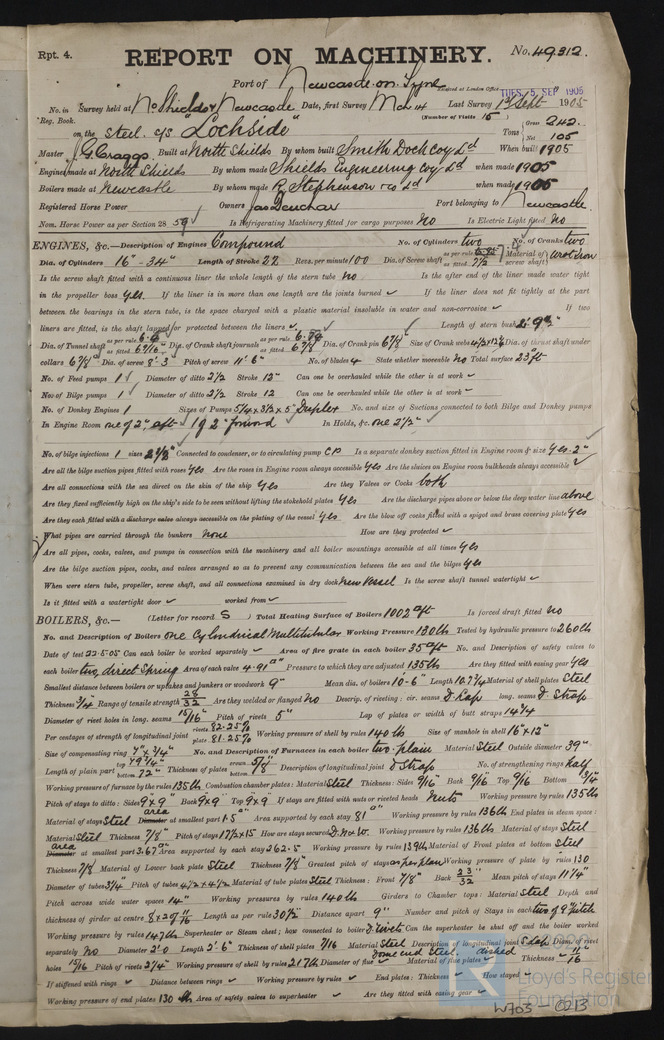 Rpt. 4. REPORT ON MACHINERY. No. 49312.
Port of Newcastle-on-Tyne
Received at London Office TUES. 5 SEP 1905
No. in Survey held at No Shields & Newcastle Date, first Survey Mar 14 Last Survey 1st Sept 1905
Reg. Book. (Number of Visits 15)
on the Steel s/s "Lochside" Tons Gross 242. Net 105
Master J. G. Craggs Built at North Shields By whom built Smith Dock Coy Ld When built 1905
Engines made at North Shields By whom made Shields Engineering Coy Ld when made 1905
Boilers made at Newcastle By whom made R. Stephenson & Co Ld when made 1905
Registered Horse Power Owners Jas Deuchar Port belonging to Newcastle
Nom. Horse Power as per Section 28 59 Is Refrigerating Machinery fitted for cargo purposes No Is Electric Light fitted No
ENGINES, &c.—Description of Engines Compound No. of Cylinders two No. of Cranks two
Dia. of Cylinders 16" - 34" Length of Stroke 22 Revs. per minute 100 Dia. of Screw shaft as per rule as fitted 7 1/2 Material of screw shaft Wrot Iron
Is the screw shaft fitted with a continuous liner the whole length of the stern tube no Is the after end of the liner made water tight
in the propeller boss yes. If the liner is in more than one length are the joints burned ✓ If the liner does not fit tightly at the part
between the bearings in the stern tube, is the space charged with a plastic material insoluble in water and non-corrosive ✓ If two
liners are fitted, is the shaft lapped or protected between the liners ✓ Length of stern bush 2' 9"
Dia. of Tunnel shaft as per rule as fitted 6 7/16" Dia. of Crank shaft journals as per rule as fitted 6 7/8" Dia. of Crank pin 6 7/8" Size of Crank webs 4 1/2 x 12 1/2 Dia. of thrust shaft under
collars 6 7/8" Dia. of screw 8' 3" Pitch of screw 11' 6" No. of blades 4 State whether moveable No Total surface 23 sq ft
No. of Feed pumps 1 Diameter of ditto 2 1/2 Stroke 12" Can one be overhauled while the other is at work ✓
No. of Bilge pumps 1 Diameter of ditto 2 1/2 Stroke 12 Can one be overhauled while the other is at work ✓
No. of Donkey Engines 1 Sizes of Pumps 5 1/4 x 3 1/2 x 5" Duplex No. and size of Suctions connected to both Bilge and Donkey pumps
In Engine Room one of 2", aft 1 of 2" forward In Holds, &c. one 2 1/2"
No. of bilge injections 1 sizes 2 7/8" Connected to condenser, or to circulating pump CP Is a separate donkey suction fitted in Engine room & size Yes - 2"
Are all the bilge suction pipes fitted with roses Yes Are the roses in Engine room always accessible Yes Are the sluices on Engine room bulkheads always accessible ✓
Are all connections with the sea direct on the skin of the ship Yes Are they Valves or Cocks both
Are they fixed sufficiently high on the ship's side to be seen without lifting the stokehold plates Yes Are the discharge pipes above or below the deep water line above
Are they each fitted with a discharge valve always accessible on the plating of the vessel Yes Are the blow off cocks fitted with a spigot and brass covering plate Yes
What pipes are carried through the bunkers none How are they protected ✓
Are all pipes, cocks, valves, and pumps in connection with the machinery and all boiler mountings accessible at all times Yes
Are the bilge suction pipes, cocks, and valves arranged so as to prevent any communication between the sea and the bilges yes
When were stern tube, propeller, screw shaft, and all connections examined in dry dock New Vessel Is the screw shaft tunnel watertight ✓
Is it fitted with a watertight door ✓ worked from ✓
BOILERS, &c.— (Letter for record S) Total Heating Surface of Boilers 1002 sq ft Is forced draft fitted No
No. and Description of Boilers one Cylindrical Multitubular Working Pressure 130 lb Tested by hydraulic pressure to 260 lb
Date of test 22-5-05 Can each boiler be worked separately ✓ Area of fire grate in each boiler 35 sq ft No. and Description of safety valves to
each boiler two, direct Spring Area of each valve 4.91 sq" Pressure to which they are adjusted 135 lb Are they fitted with easing gear Yes
Smallest distance between boilers or uptakes and bunkers or woodwork 9" Mean dia. of boilers 10-6" Length 10.7 3/4 Material of shell plates Steel
Thickness 3/4" Range of tensile strength 28/32 Are they welded or flanged No Descrip. of riveting: cir. seams D Lap long. seams D Strap
Diameter of rivet holes in long. seams 15/16" Pitch of rivets 5" Lap of plates or width of butt straps 14 1/4
Per centages of strength of longitudinal joint rivets 82.25% plate 81.25% Working pressure of shell by rules 140 lb Size of manhole in shell 16" x 12"
Size of compensating ring 7" x 3/4" No. and Description of Furnaces in each boiler two plain Material Steel Outside diameter 39"
Length of plain part top bottom 72" Thickness of plates crown bottom 5/8" Description of longitudinal joint D Strap No. of strengthening rings half
Working pressure of furnace by the rules 135 lb Combustion chamber plates: Material Steel Thickness: Sides 9/16" Back 9/16" Top 9/16" Bottom 13/16"
Pitch of stays to ditto: Sides 9" x 9" Back 9 x 9 Top 9 x 9 If stays are fitted with nuts or riveted heads Nuts Working pressure by rules 135 lb
Material of stays Steel area at smallest part 1.5 Area supported by each stay 81 Working pressure by rules 136 lb End plates in steam space:
Material Steel Thickness 7/8" Pitch of stays 17 1/2 x 15 How are stays secured D. No W. Working pressure by rules 136 lb Material of stays Steel
area at smallest part 3.67 Area supported by each stay 262.5 Working pressure by rules 139 lb Material of Front plates at bottom Steel
Thickness 7/8 Material of Lower back plate Steel Thickness 7/8" Greatest pitch of stays as per plan Working pressure of plate by rules 130
Diameter of tubes 3 1/4 Pitch of tubes 4 1/2 x 4 1/2 Material of tube plates Steel Thickness: Front 7/8" Back 23/32 Mean pitch of stays 11 1/4"
Pitch across wide water spaces 14" Working pressures by rules 140 lb Girders to Chamber tops: Material Steel Depth and
thickness of girder at centre 8 x 2 of 7/16 Length as per rule 30 1/2 Distance apart 9" Number and pitch of Stays in each two of 9" pitch
Working pressure by rules 147 lb Superheater or Steam chest; how connected to boiler D. rivets Can the superheater be shut off and the boiler worked
separately No Diameter 2' 0 Length 2' 6" Thickness of shell plates 7/16 Material Steel Description of longitudinal joint S Lap Diam. of rivet
holes 15/16 Pitch of rivets 2 1/4" Working pressure of shell by rules 217 lb Diameter of flue Dome end Steel. dished Material of flue plates ✓ Thickness 11/16"
If stiffened with rings ✓ Distance between rings ✓ Working pressure by rules ✓ End plates: Thickness ✓ How stayed ✓
Working pressure of end plates 130 lb Area of safety valves to superheater ✓ Are they fitted with easing gear ✓
Lloyd's Register
Foundation
W703-0213